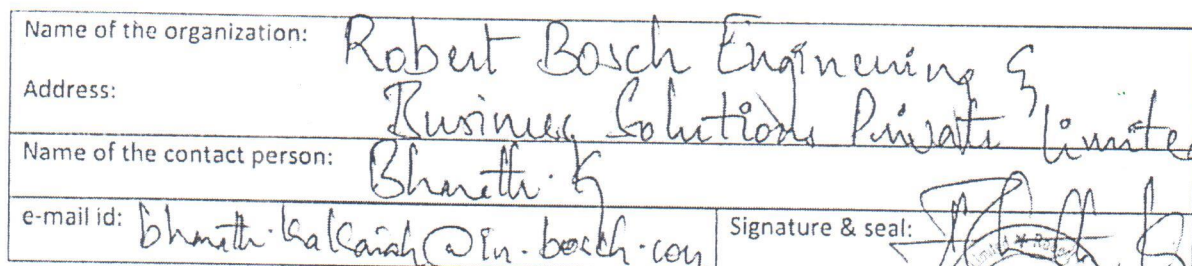 Name of the organization: Robert Bosch Engineering &
Address: Business Solutions Private Limite
Name of the contact person: Bharath. K
e-mail id: bharath.kalkaiah@in.bosch.com Signature & seal: